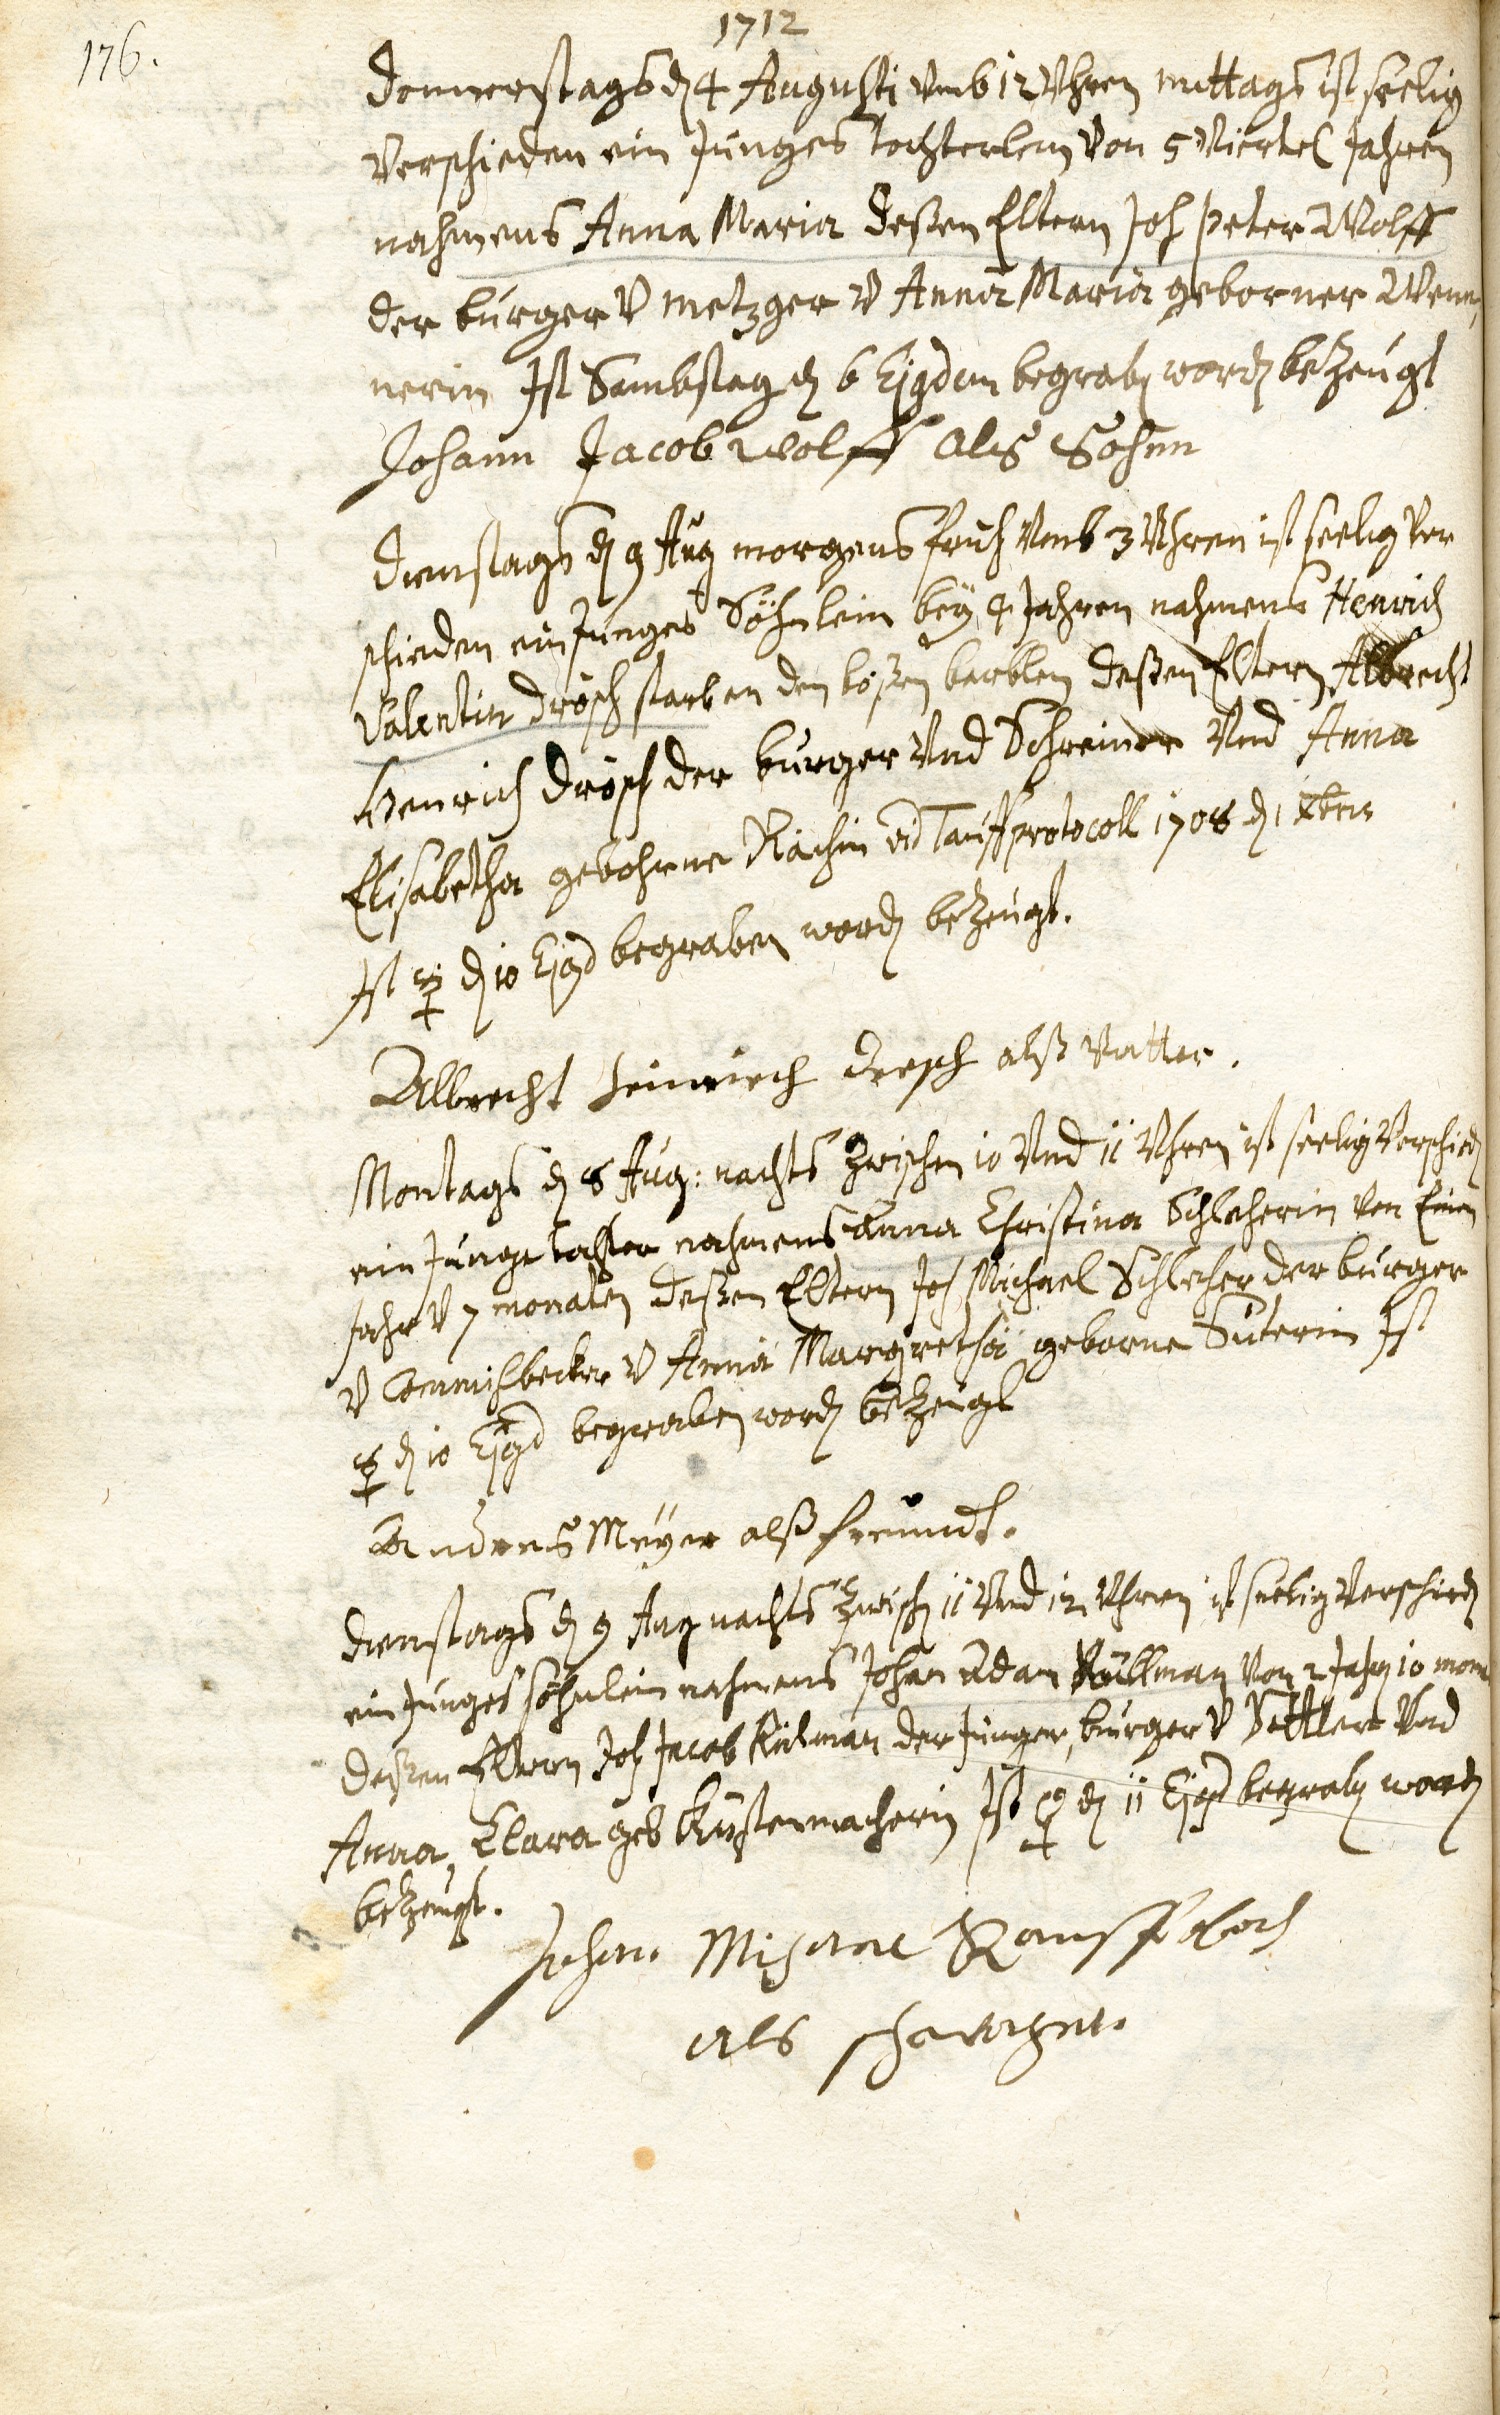 1712
176.
Donnerstags d 4 Augusti umb 12 Uhren mittags ist seelig
verschieden ein junges tochterlein von 5 Viertel Jahren
nahmens Anna Maria deßen Eltern Joh Peter Wolff
der burger v metzger v Anna Maria geborner Wenn,
nerin Ist Sambstag d 6 Ejgdem begrabē word bezeugt
Johann Jacob Wolff als Sohnn
Dienstags d 9 Aug morgens früh umb 3 Uhren ist seelig ver
schieden ein Junges Söhnlein bey 4 Jahren nahmens Henrich
Valentin Drösch starb an den bößen deßen Eltern Albrecht
Henrich Drösch der burger und Schreiner und Anna
Elisabetha gebohrne vid Tauffprotocoll 1708 d 1 Xbris
Ist ☿ d 10 Ejgd begraben word bezeugt.
Albrecht Heinrich Dresch alß Vatter.
Montags d 8 Aug: nachts zwischen 10 und 11 Uhren ist seelig verschied
ein junge tochter nahmens Anna Christina Schleherin von Einem
Jahr v 7 monaten deßen Eltern Joh Michael Schleher der burger
v v Anna Margretha geborne Suterin Ist
☿ d 10 Ejgd begraben word bezeugt
Andreas Meyer alß freundt.
Dienstags d 9 Aug nachts zwisch 11 und 12 Uhren ist seelig verschied
ein junges söhnlein nahmens Johan Adam Küllman von 2 Jahr 10 mona
deßen Eltern Joh Jacob Külman der Jünger, burger v Sattler und
Anna Clara geb Küstenmacherin Ist d 11 Ejgd begrabē word
bezeugt.
Johan Michael
als